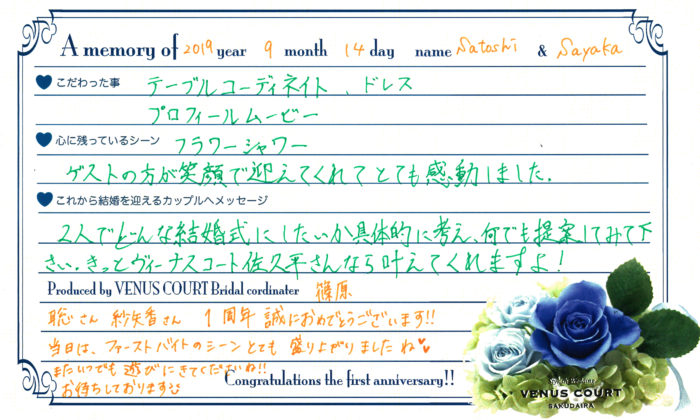 A memory of 2019 year 9 month 14 day name Satoshi & Sayaka
こだわった事 テーブルコーディネイト、ドレス
プロフィールムービー
心に残っているシーン フラワーシャワー
ゲストの方が笑顔で迎えてくれてとても感動しました.
これから結婚を迎えるカップルへメッセージ
2人でどんな結婚式にしたいか具体的に考え、何でも提案してみて下
さい. きっとヴィーナスコート佐久平さんなら叶えてくれますよ!
Produced by VENUS COURT Bridal cordinater 篠原
聡さん 紗矢香さん 1周年 誠におめでとうございます!!
当日は、ファーストバイトのシーン とても 盛り上がりましたね♥
またいつでも 遊びにきてくださいね!!
お待ちしております
Congratulations the first anniversary!!
VENUS COURT
SAKUDAIRA